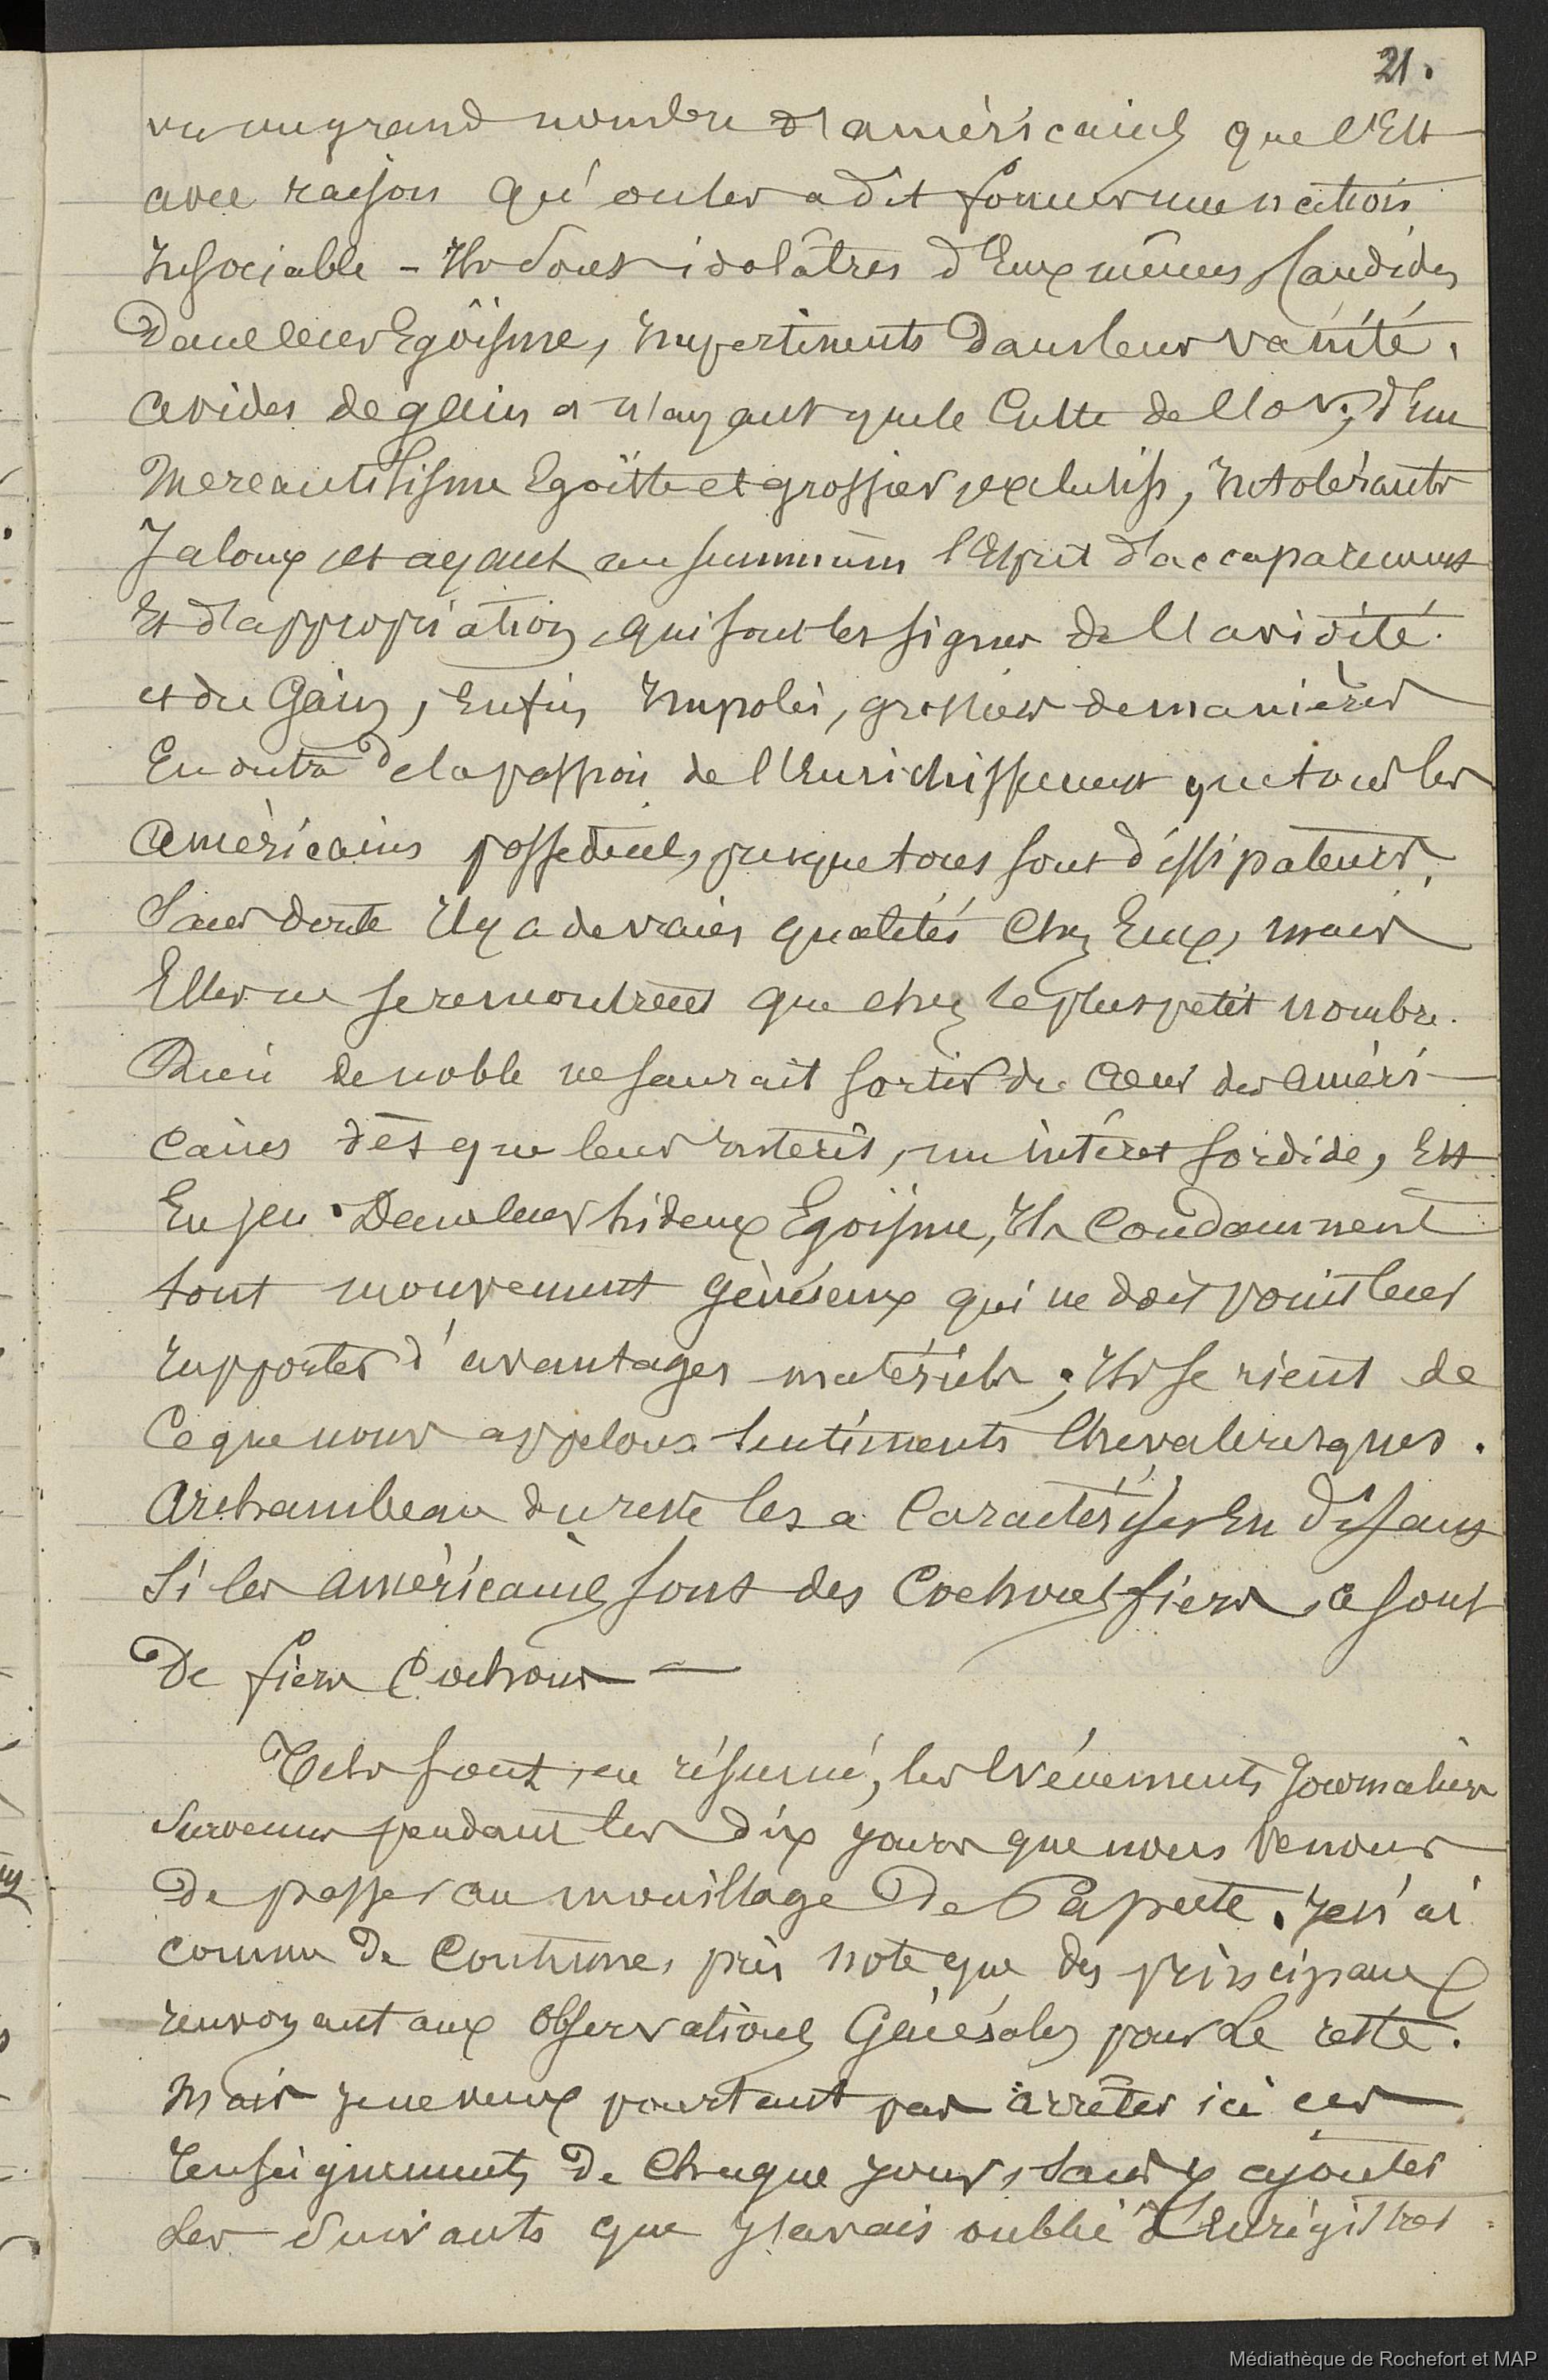 21.
vu un grand nombre d'américains que c'Est
avec raison qu'on les a dit former une nation
Insociable - Ils sont idolâtres d'Eux mêmes, Candides
Dans leur Egoïsme, Impertinents Dans leur vanité,
avides de gain et n'ayant que le Culte de l'or, d'un
Mercantilisme Egoïste et grossier, exclusifs, Intolérants
Jaloux et ayant au summum l'Esprit d'accaparement
Et d'appropriation, qui sont les signes de l'avidité
et du Gain, Enfin Impolis, grossiers de manières
En outre de la passion de l'Enrichissement que tous les
américains possèdent, presque tous sont dissipateurs.
Sans doute Il y a de vraies qualités Chez Eux, mais
Elles ne se remontrent que chez le plus petit nombre.
Rien de noble ne saurait sortir du Cœur des améri-
cains dès que leur intérêt, un intérêt sordide, Est
En jeu. Dans leur hideux Egoïsme, Ils Condamnent
tout mouvement généreux qui ne doit point leur
rapporter d'avantages matériels ; Ils se rient de
Ce que nous appelons sentiments Chevaleresques.
Archambeau du reste les a Caractérisés En disant
Si les américains sont des Cochons fiers, ce sont
De fiers Cochons —
Tels sont, en résumé, les Evénements Journaliers
Survenus pendant les dix jours que nous venons
De passer au mouillage De Papeete. Je n'ai
comme De Coutume, pris note que des principaux
renvoyant aux Observations Générales pour Le reste.
Mais je ne veux pourtant pas arrêter ici ces
Renseignements De Chaque jour, sans y ajouter
Les Suivants que j'avais oublié d'Enrégistrer.
Médiathèque de Rochefort et MAP